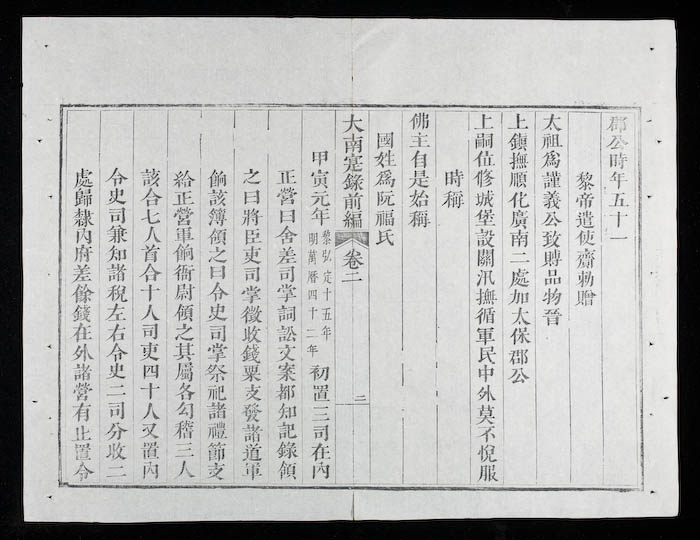 郡公時年五十一
黎帝遣使齎勅贈
太祖爲謹義公致賻品物晉
上鎮撫順化廣南二處加太保郡公
上嗣位修城堡設關汛撫循軍民中外莫不悅服
時稱
佛主自是始稱
國姓爲阮福氏
大南寔錄前編 卷二 二
甲寅元年 黎弘定十五年 明萬曆四十二年 初置三司在內
正營曰舍差司掌詞訟文案都知記錄領
之曰將臣吏司掌徵收錢粟支發諸道軍
餉該簿領之曰令史司掌祭祀諸禮節支
給正營軍餉衙尉領之其屬各勾稽三人
該合七人首合十人司吏四十人又置內
令史司兼知諸稅左右令史二司分收二
處歸隸內府差餘錢在外諸營有止置令